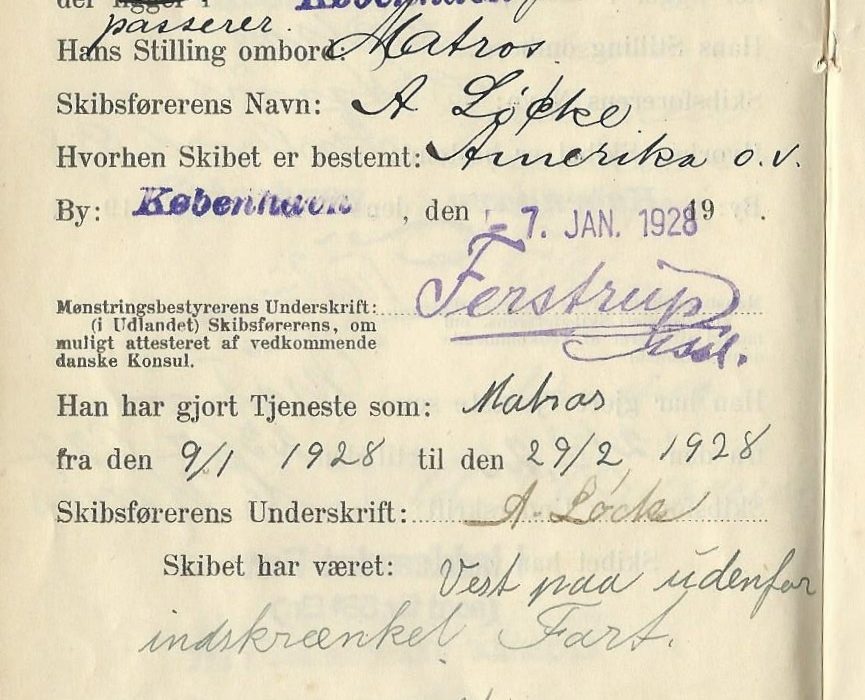 der ligger i København
passerer.
Hans Stilling ombord: Matros.
Skibsførerens Navn: A Løcke
Hvorhen Skibet er bestemt: Amerika o.v.
By: København, den - 7. JAN. 1928 19 .
Mønstringsbestyrerens Underskrift: Ferstrup
(i Udlandet) Skibsførerens, om
muligt attesteret af vedkommende
danske Konsul.
Han har gjort Tjeneste som: Matros
fra den 9/1 1928 til den 29/2 1928
Skibsførerens Underskrift: A. Løcke
Skibet har været: Vest paa udenfor
indskrænket Fart.